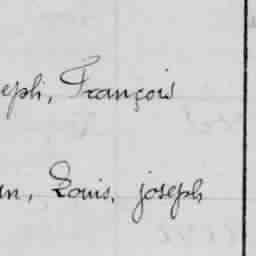 eph, François
n, Louis, joseph